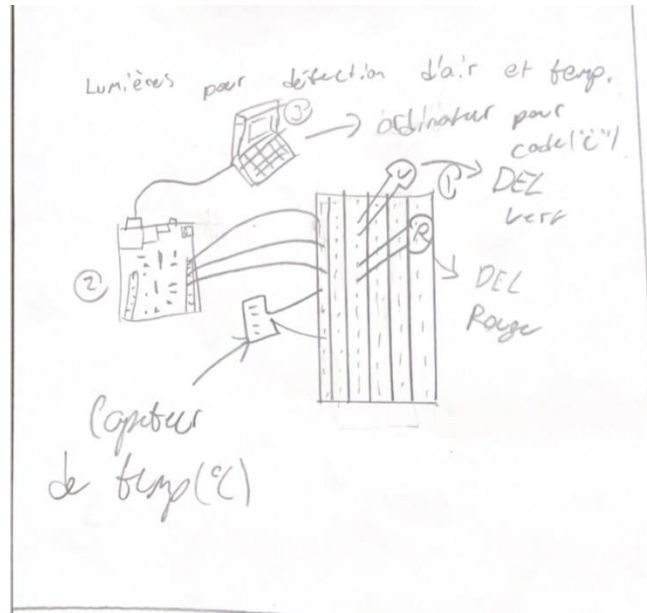 Lumières pour détection d'air et temp.
③
ordinateur pour
code ("c")
①
DEL
vert
V
R
②
DEL
Rouge
Capteur
de temp (°C)